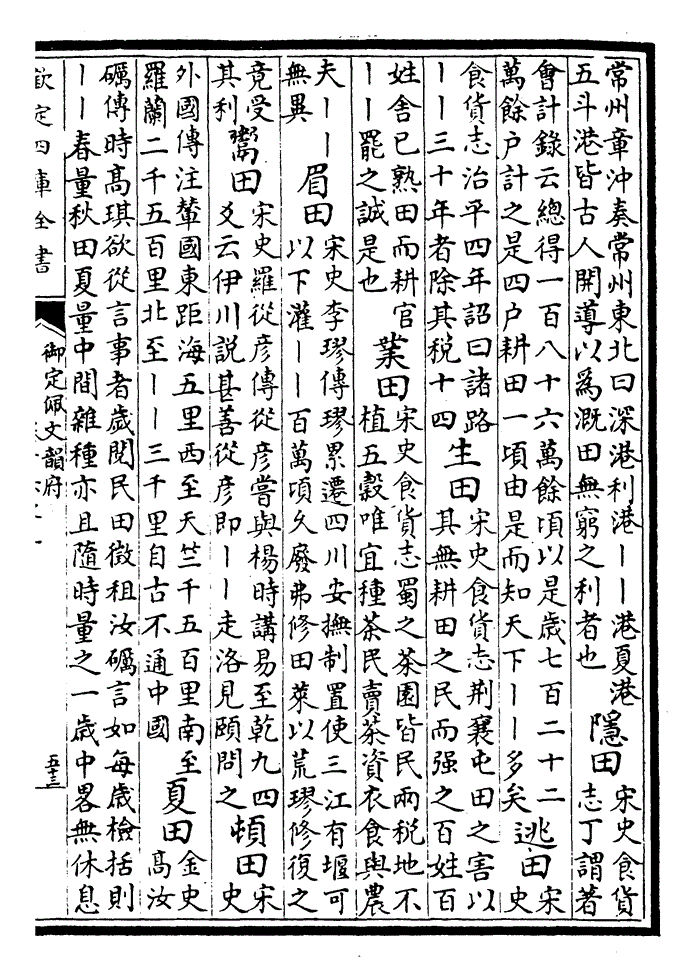 常州章沖奏常州東北曰深港利港丨丨港夏港
五斗港皆古人開導以為溉田無窮之利者也
隱田
宋史食貨
志丁謂著
會計錄云總得一百八十六萬餘頃以是歲七百二十二
萬餘户計之是四户耕田一頃由是而知天下丨丨多矣
逃田
宋
史
食貨志治平四年詔曰諸路
丨丨三十年者除其税十四
生田
宋史食貨志荆襄屯田之害以
其無耕田之民而强之百姓百
姓舍已熟田而耕官
丨丨罷之誠是也
業田
宋史食貨志蜀之茶園皆民兩税地不
植五穀唯宜種茶民賣茶資衣食與農
夫丨丨
無異
眉田
宋史李璆傳璆累遷四川安撫制置使三江有堰可
以下灌丨丨百萬頃乆廢弗修田萊以荒璆修復之
竟受
其利
鬻田
宋史羅從彦傳從彦嘗與楊時講易至乾九四
爻云伊川説甚善從彦即丨丨走洛見頤問之
頓田
宋
史
外國傳注輦國東距海五里西至天竺千五百里南至
羅蘭二千五百里北至丨丨三千里自古不通中國
夏田
金史
髙汝
礪傳時髙琪欲從言事者歲閱民田徵租汝礪言如每歲檢括則
丨丨春量秋田夏量中間雜種亦且隨時量之一歲中畧無休息
欽定四庫全書
御定佩文韻府
五十三